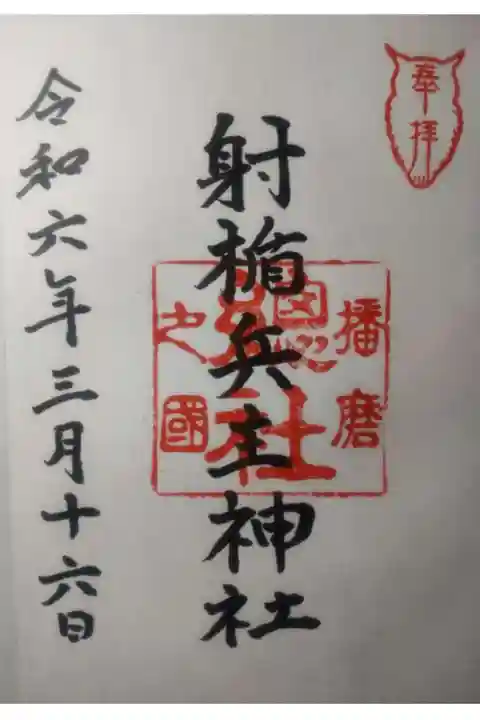 奉拝
播磨
總社
之國
射楯兵主神社
令和六年三月十六日